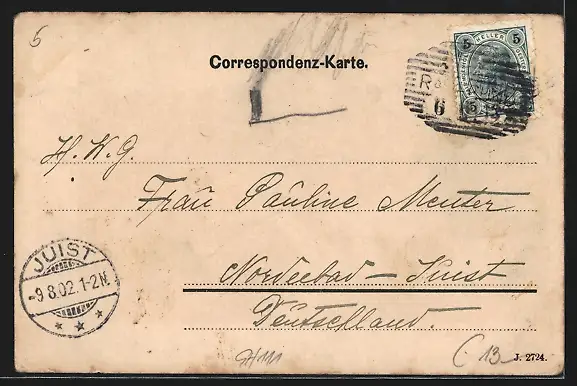 5
Correspondenz-Karte.
5 HELLER 5
6
H. W. G.
Frau Pauline Menter
Nordseebad - Juist
Deutschland.
JUIST
-9 8.02. 1-2N.
* * *
13
J. 2724.